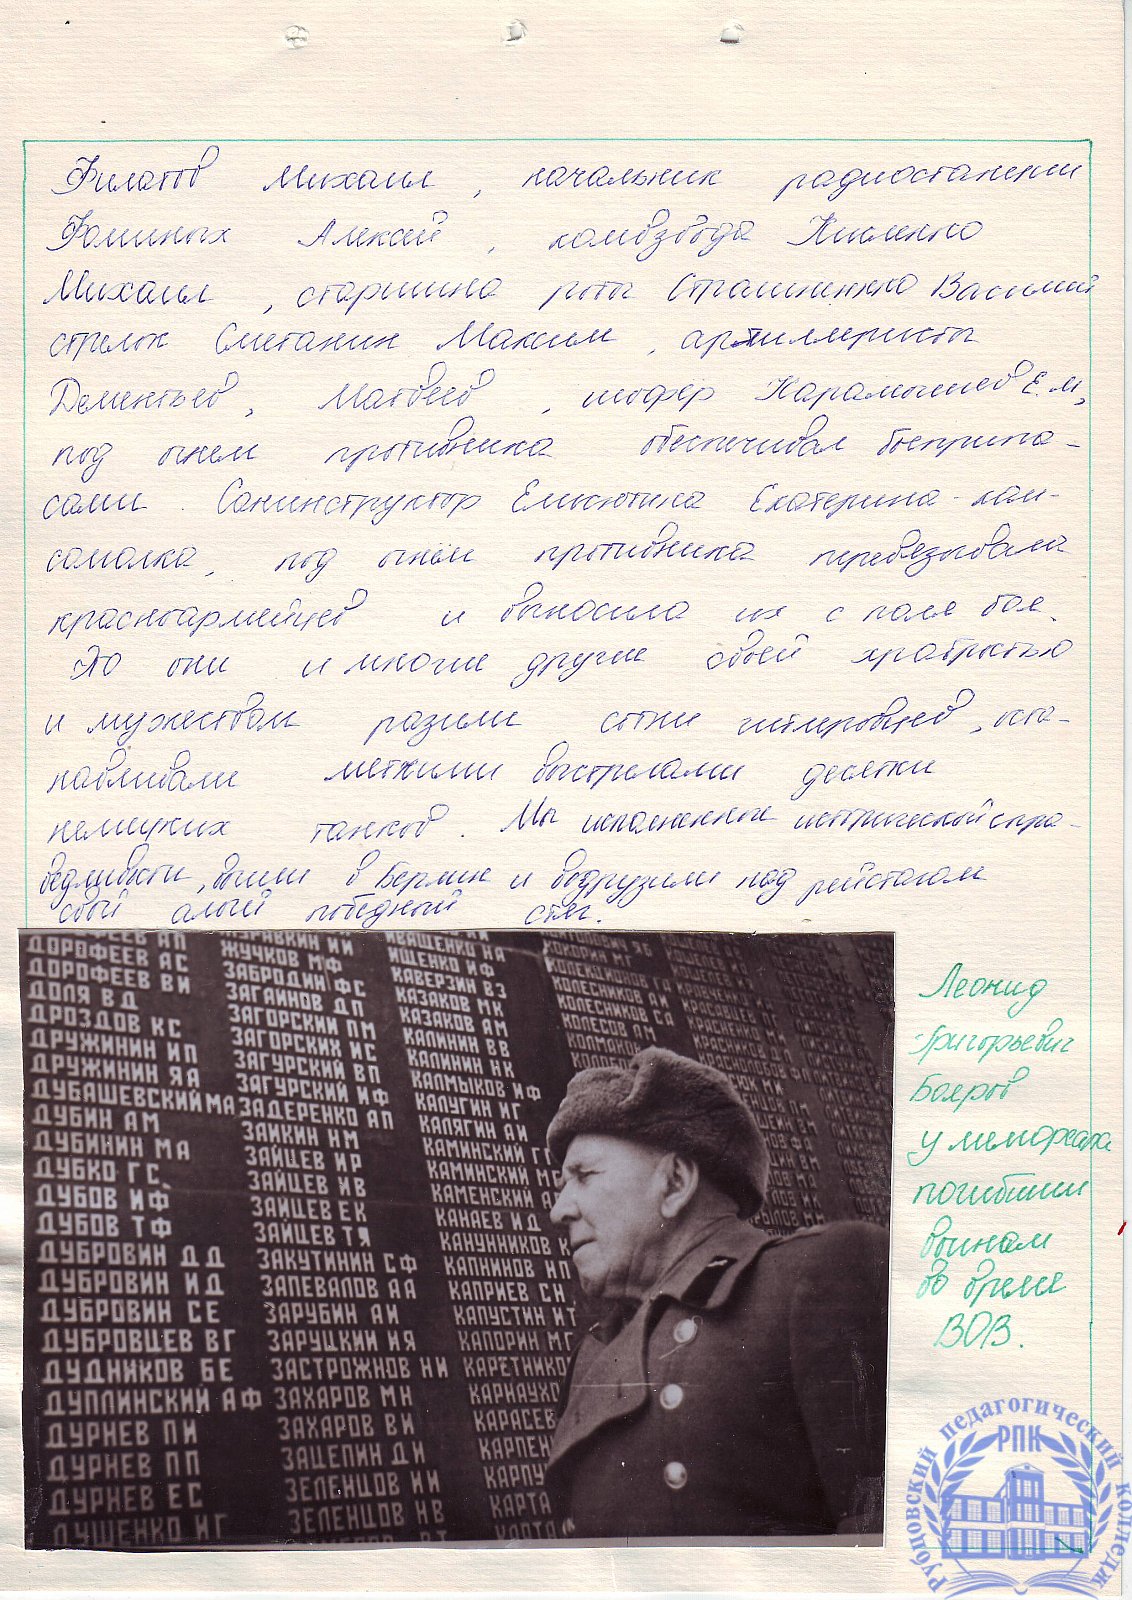 Филатов Михаил, начальник радиостанции
Фоминых Алексей, комвзвода Кисленко
Михаил, старшина роты Страшненко Василий
стрелок Сметанин Максим, артиллеристы
Дементьев, Матвеев, шофер Карамышев Е.М,
под огнем противника обеспечивал боеприпа-
сами. Санинструктор Екатерина - ком-
сомолка, под огнём противника перевязывала
красноармейцев и выносила их с поля боя.
Это они и многие другие своей храбростью
и мужеством разили сотни гитлеровцев, оста-
навливали меткими выстрелами десятки
немецких танков. Мы исполненные исторической спра-
ведливости, вошли в Берлин и водрузили над рейстагом
свой алый победный стяг.
ДОРОФЕЕВ АП
ДОРОФЕЕВ АС
ДОРОФЕЕВ ВИ
ДОЛЯ ВД
ДРОЗДОВ КС
ДРУЖИНИН ИП
ДРУЖИНИН ЯА
ДУБАШЕВСКИЙ МА
ДУБИН АМ
ДУБИНИН МА
ДУБКО ГС
ДУБОВ ИФ
ДУБОВ ТФ
ДУБРОВИН ДД
ДУБРОВИН ИД
ДУБРОВИН СЕ
ДУБРОВЦЕВ ВГ
ДУДНИКОВ БЕ
ДУПЛИНСКИЙ АФ
ДУРНЕВ ПИ
ДУРНЕВ ПП
ДУРНЕВ ЕС
ДУЩЕНКО ИГ
ЖУРАВКИН ИИ
ЖУЧКОВ МФ
ЗАБРОДИН ФС
ЗАГАЙНОВ ДП
ЗАГОРСКИЙ ПМ
ЗАГОРСКИХ ИС
ЗАГУРСКИЙ ВП
ЗАГУРСКИЙ ИФ
ЗАДЕРЕНКО АП
ЗАИКИН НМ
ЗАЙЦЕВ ИР
ЗАЙЦЕВ ИВ
ЗАЙЦЕВ ЕК
ЗАЙЦЕВ ТЯ
ЗАКУТИНИН СФ
ЗАЛЕВАЛОВ АА
ЗАРУБИН АИ
ЗАРУЦКИЙ ИЯ
ЗАСТРОЖНОВ НИ
ЗАХАРОВ МН
ЗАХАРОВ ВИ
ЗАЦЕПИН ДИ
ЗЕЛЕНЦОВ ИИ
ЗЕЛЕНЦОВ НВ
ИВАЩЕНКО НА
ИЩЕНКО ИФ
КАВЕРЗИН ВЗ
КАЗАКОВ МК
КАЗАКОВ АМ
КАЛИНИН ВВ
КАЛИНИН НК
КАЛМЫКОВ ИФ
КАЛУГИН ИГ
КАЛЯГИН АИ
КАМИНСКИЙ ГГ
КАМИНСКИЙ
КАМЕНСКИЙ
КАНАЕВ ИД
КАНУННИКОВ К
КАПНИКОВ НП
КАПРИЕВ СН
КАПУСТИН ИТ
КАПОРИН МГ
КАРЕТНИКО
КАРНАУХО
КАРАСЕВ
КАРПЕН
КАРПУ
КАРТА
КОКОРИН МГ
КОЛЕКЦИОНОВ ГА
КОЛЕСНИКОВ АИ
КОЛЕСНИКОВ СА
КОЛЕСОВ АМ
Леонид
Григорьевич
Бояров
у мемориала
погибшим
воинам
во время
ВОВ.
РУБЦОВСКИЙ педагогический колледж
РПК